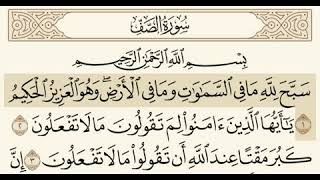 سُورَةُ الصَّفِّ
بِسْمِ اللَّهِ الرَّحْمَٰنِ الرَّحِيمِ
سَبَّحَ لِلَّهِ مَا فِي السَّمَٰوَٰتِ وَمَا فِي الْأَرْضِ ۖ وَهُوَ الْعَزِيزُ الْحَكِيمُ
١ يَٰٓأَيُّهَا الَّذِينَ ءَامَنُوا لِمَ تَقُولُونَ مَا لَا تَفْعَلُونَ ٢
كَبُرَ مَقْتًا عِندَ اللَّهِ أَن تَقُولُوا مَا لَا تَفْعَلُونَ ٣ إِنَّ